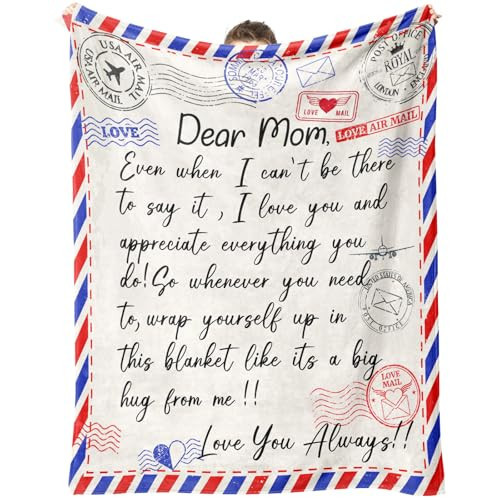 USA AIR MAIL
USA AIR MAIL
POST OFFICE
ROYAL
LONDON
LOVE MAIL
LOVE
LOVE AIR MAIL
Dear Mom,
Even when I can't be there
to say it , I love you and
appreciate everything you
do! So whenever you need
to, wrap yourself up in
this blanket like its a big
hug from me !!
UNITED STATES OF AMERICA
LOVE
MAIL
Love You Always!!